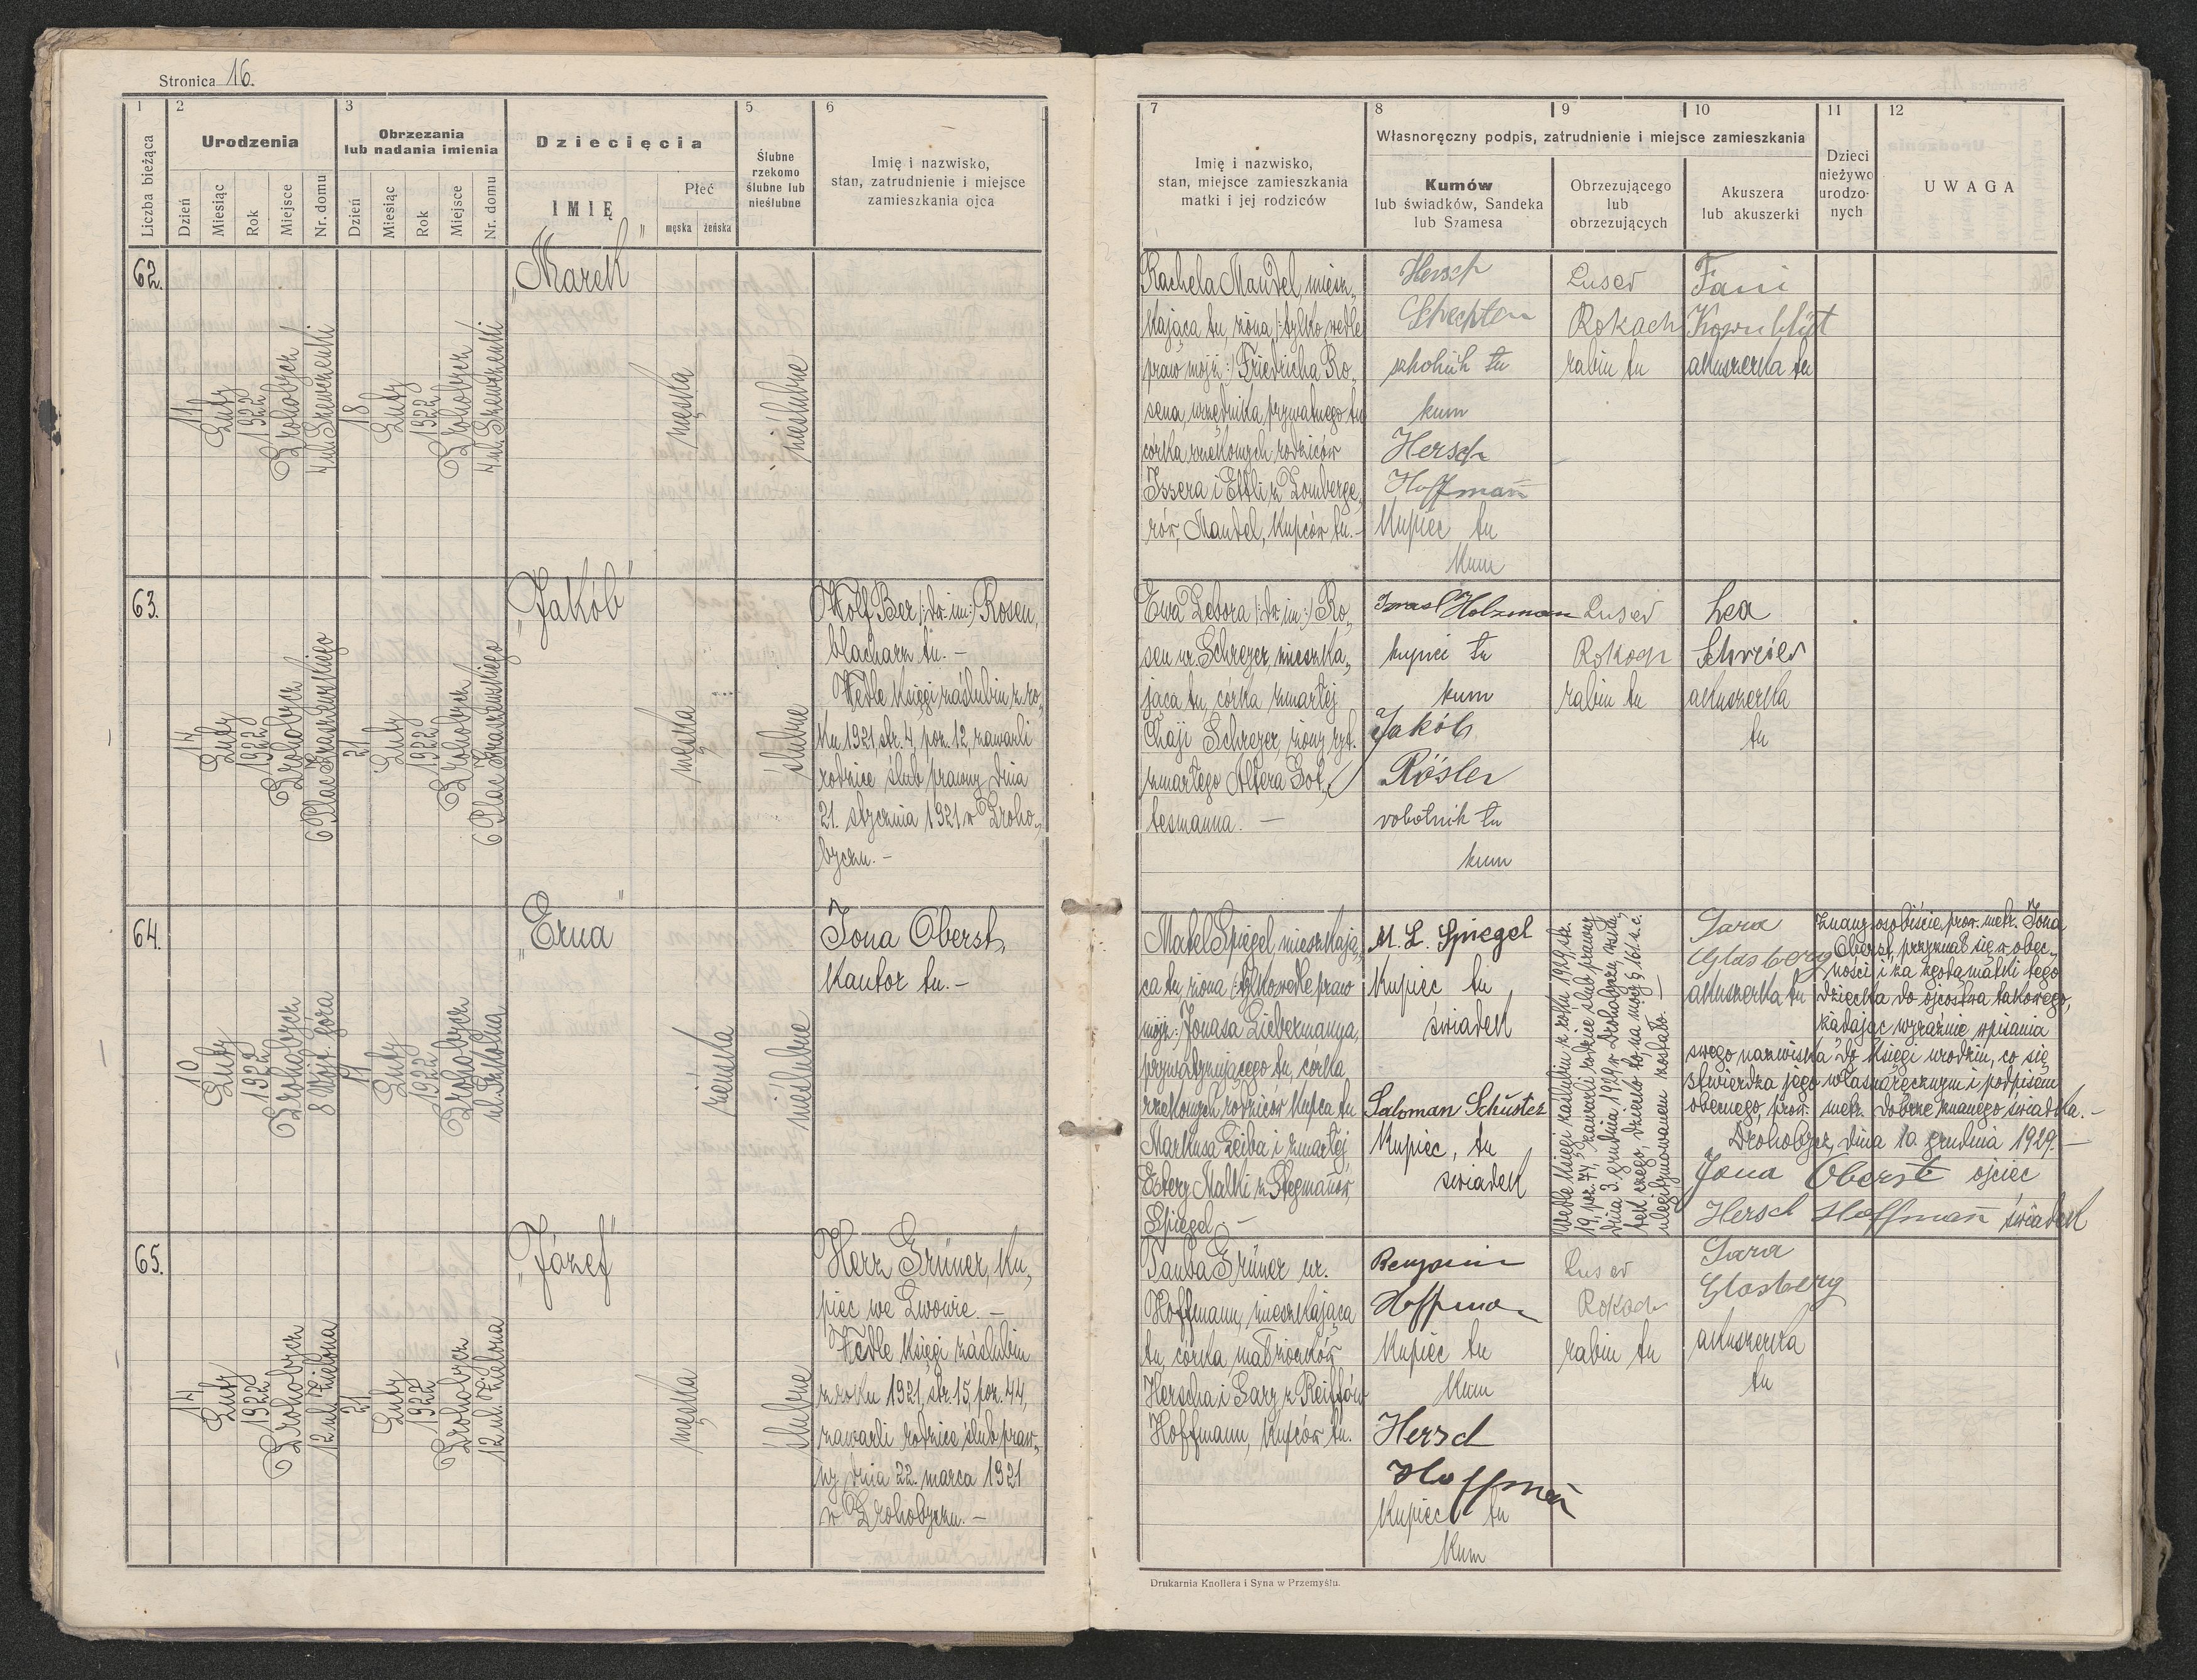 Stronica 16.
1
2
3
5
6
Liczba bieżąca
Urodzenia
Dzień
Miesiąc
Rok
Miejsce
Nr. domu
Obrzezania
lub nadania imienia
Dzień
Miesiąc
Rok
Miejsce
Nr. domu
Dziecięcia
IMIĘ
Płeć
męska
żeńska
Ślubne
rzekomo
ślubne lub
nieślubne
Imię i nazwisko,
stan, zatrudnienie i miejsce
zamieszkania ojca
7
8
9
10
11
12
Imię i nazwisko,
stan, miejsce zamieszkania
matki i jej rodziców
Własnoręczny podpis, zatrudnienie i miejsce zamieszkania
Kumów
lub świadków, Sandeka
lub Szamesa
Obrzezującego
lub
obrzezujących
Akuszera
lub akuszerki
Dzieci
nieżywo
urodzo-
nych
UWAGA
62.
11
Luty
1922
Drohobycz
4 ul. Szewczenki
18
Luty
1922
Drohobycz
4 ul. Szewczenki
"Marek"
męska
nieślubne
Rachela Mandel, miesz„
kająca tu, żona /:tylko wedle
praw mojż:/ Friedricha Ro„
sena, urzędnika prywatnego tu
córka rzekomych rodziców
Issera i Ettli z Lomberge„
rów, Mandel, kupców tu.-
Hersch
Schechter
szkolnik tu
kum
Hersch
Hoffmann
Kupiec tu
Kum
Luser
Rokach
rabin tu
Fani
Kornblüt
akuszerka tu
63.
14
Luty
1922
Drohobycz
6 Plac Kraszewskiego
21
Luty
1922
Drohobycz
6 Plac Kraszewskiego
"Jakób"
męska
ślubne
Wolf Ber /:dw. im:/ Rosen,
blacharz tu.-
Wedle Księgi zaślubin z ro„
ku 1921, str. 4, poz. 12, zawarli
rodzice ślub prawny dnia
21. stycznia 1921 w Droho„
byczu.-
Ewa Debora /:dw. im:/ Ro„
sen ur. Schreyer, mieszka„
jąca tu, córka zmarłej
Chaji Schreyer, żony ryt.
zmarłego Altera Got„
tesmanna.-
Izrael Holzman
kupiec tu
kum
Jakób
Rösler
robotnik tu
kum
Luser
Rokach
rabin tu
Lea
Schreier
akuszerka
tu
64.
10
Luty
1922
Drohobycz
8 Wójt. góra
11
Luty
1922
Drohobycz
ul. Szkolna
"Erna"
żeńska
nieślubne
Jona Oberst,
Kantor tu.-
Matel Spiegel, mieszkają„
ca tu żona /:tylko wedle praw
mojż:/ Jonasa Liebermanna,
prywatyzującego tu, córka
rzekomych rodziców kupca tu
Markusa Leiba i zmarłej
Estery Malki z Stegmanów,
Spiegel.-
M. L. Spiegel
Kupiec tu
świadek
Saloman Schuster
Kupiec, tu
świadek
Wedle Księgi zaślubin z roku 1929 str.
19, poz. 74, zawarli rodzice ślub prawny
dnia 3. grudnia 1929 w Drohobyczu, wsku„
tek czego, dziecko to na mocy § 161. u. c.
ulegitymowanem zostało.-
Sara
Glasberg
akuszerka tu
Znany osobiście prow. metr. Jona
Oberst, przyznał się w obec„
ności i za zgodą matki tego
dziecka do ojcostwa takowego,
żądając wyraźnie wpisania
swego nazwiska do Księgi urodzin, co się
stwierdza jego własnoręcznym i podpisem
obecnego, prow. metr. dobrze znanego świadka.-
Drohobycz, dnia 10 grudnia 1929.-
Jona Oberst ojciec
Hersch Hoffmann świadek
65.
14
Luty
1922
Drohobycz
12 ul. Zielona
21
Luty
1922
Drohobycz
12 ul. Zielona
"Józef"
męska
ślubne
Herz Grüner, ku„
piec we Lwowie.-
Wedle Księgi zaślubin
z roku 1921, str. 15, poz. 44,
zawarli rodzice ślub praw„
ny dnia 22. marca 1921
w Drohobyczu.-
Tauba Grüner ur.
Hoffmann, mieszkająca
tu, córka małżonków
Herscha i Sary z Reiffów
Hoffmann, kupców tu.
Benjamin
Hoffman
Kupiec tu
Kum
Hersch
Hoffman
Kupiec tu
Kum
Luser
Rokach
rabin tu
Sara
Glasberg
akuszerka
tu
Drukarnia Knollera i Syna w Przemyślu.